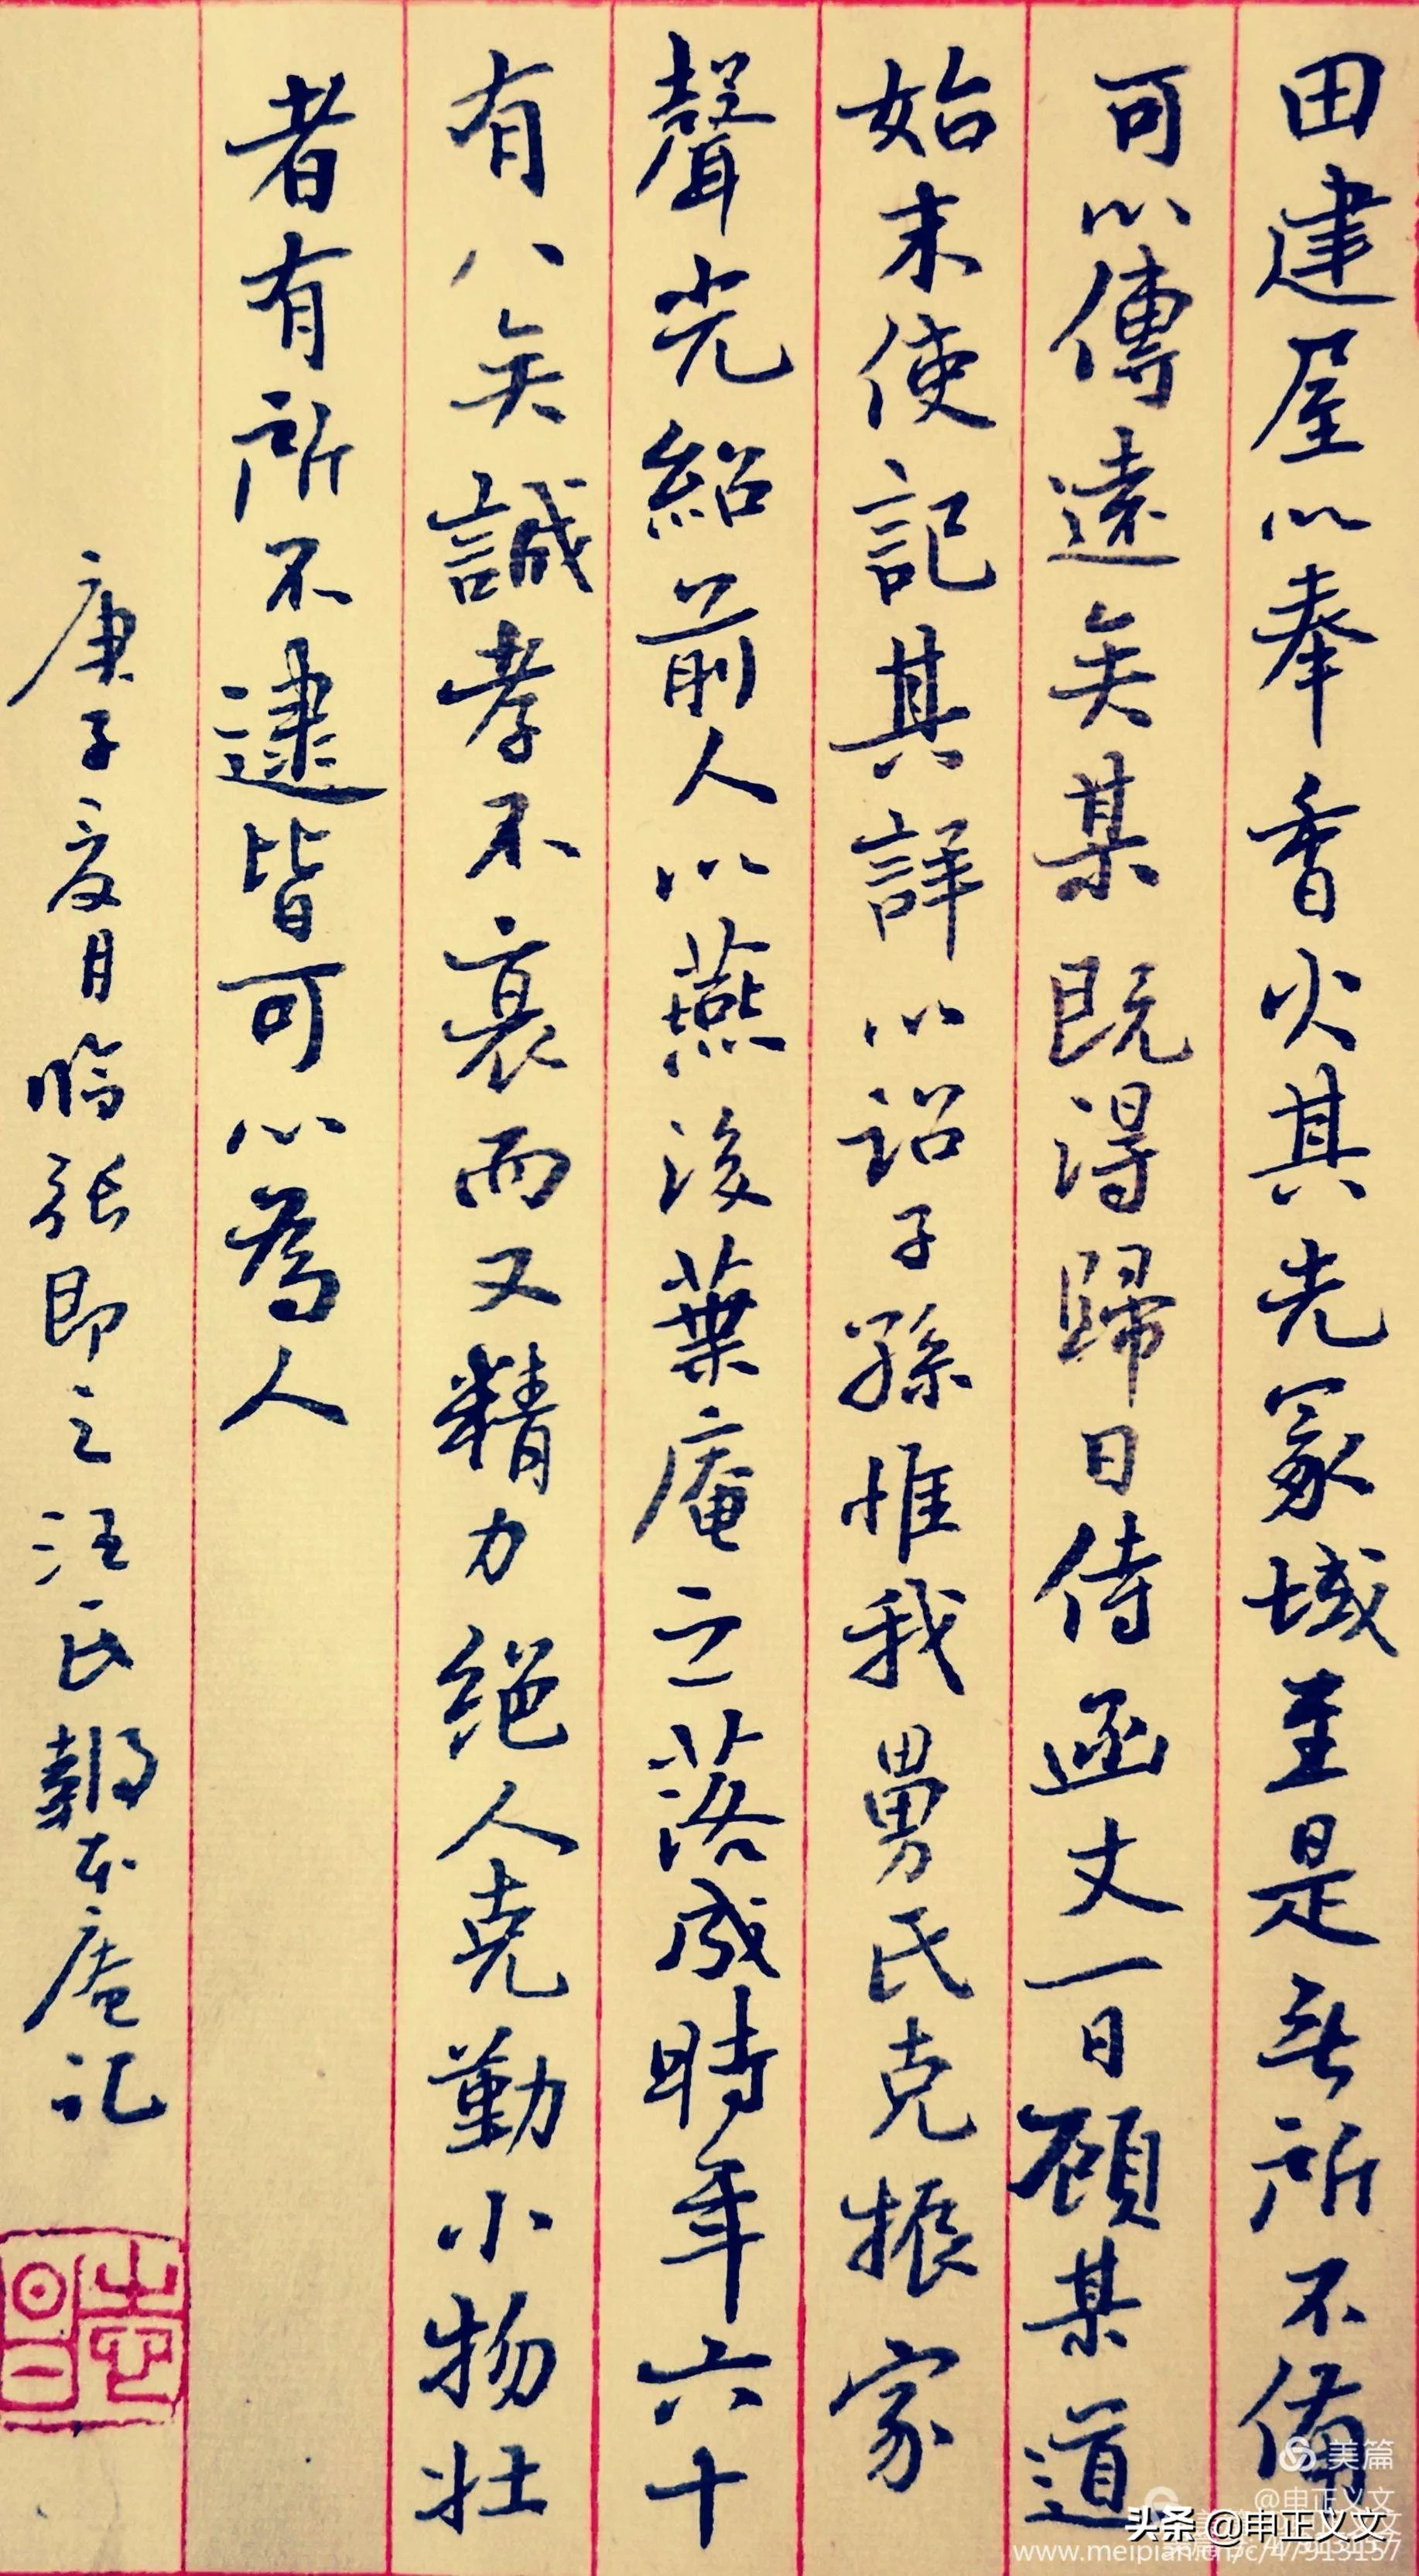 田建屋以奉香火其先冢域至是無所不備
可以傳遠矣某既得歸日侍函丈一日顧某道
始末使記其詳以詔子孫惟我舅氏克振家
聲光紹前人以燕後葉庵之落成時年六十
有八矣誠孝不衰而又精力絕人克勤小物壯
者有所不逮皆可以為人
庚子夏月臨張即之汪氏報本庵記
美篇
@申正义文
头条 @申正义文
www.meipian.cn/c/47913157